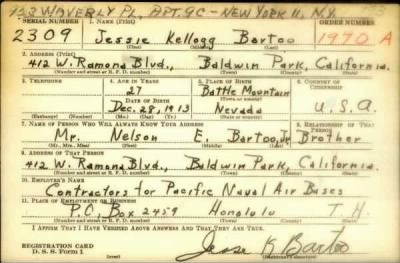 132 WAVERLY PL. APT. 9C - NEW YORK 11, N.Y.
SERIAL NUMBER 1. NAME (Print) ORDER NUMBER
2309 Jessie Kellogg Bartoo 1970 A
(First) (Middle) (Last)
2. ADDRESS (Print)
412 W. Ramona Blvd., Baldwin Park, California.
(Number and street or R. F. D. number) (Town) (County) (State)
3. TELEPHONE 4. AGE IN YEARS 5. PLACE OF BIRTH 6. COUNTRY OF CITIZENSHIP
27 Battle Mountain
DATE OF BIRTH (Town or county)
Dec. 28, 1913 Nevada U.S.A.
(Exchange) (Number) (Mo.) (Day) (Yr.) (State or country)
7. NAME OF PERSON WHO WILL ALWAYS KNOW YOUR ADDRESS 8. RELATIONSHIP OF THAT PERSON
Mr. Nelson E. Bartoo, Jr. Brother
(Mr., Mrs., Miss) (First) (Middle) (Last)
9. ADDRESS OF THAT PERSON
412 W. Ramona Blvd., Baldwin Park, California.
(Number and street or R. F. D. number) (Town) (County) (State)
10. EMPLOYER'S NAME
Contractors for Pacific Naval Air Bases
11. PLACE OF EMPLOYMENT OR BUSINESS
P.O. Box 2459 Honolulu T.H.
(Number and street or R. F. D. number) (Town) (County) (State)
I AFFIRM THAT I HAVE VERIFIED ABOVE ANSWERS AND THAT THEY ARE TRUE.
REGISTRATION CARD
D. S. S. Form 1 Jesse K Bartoo